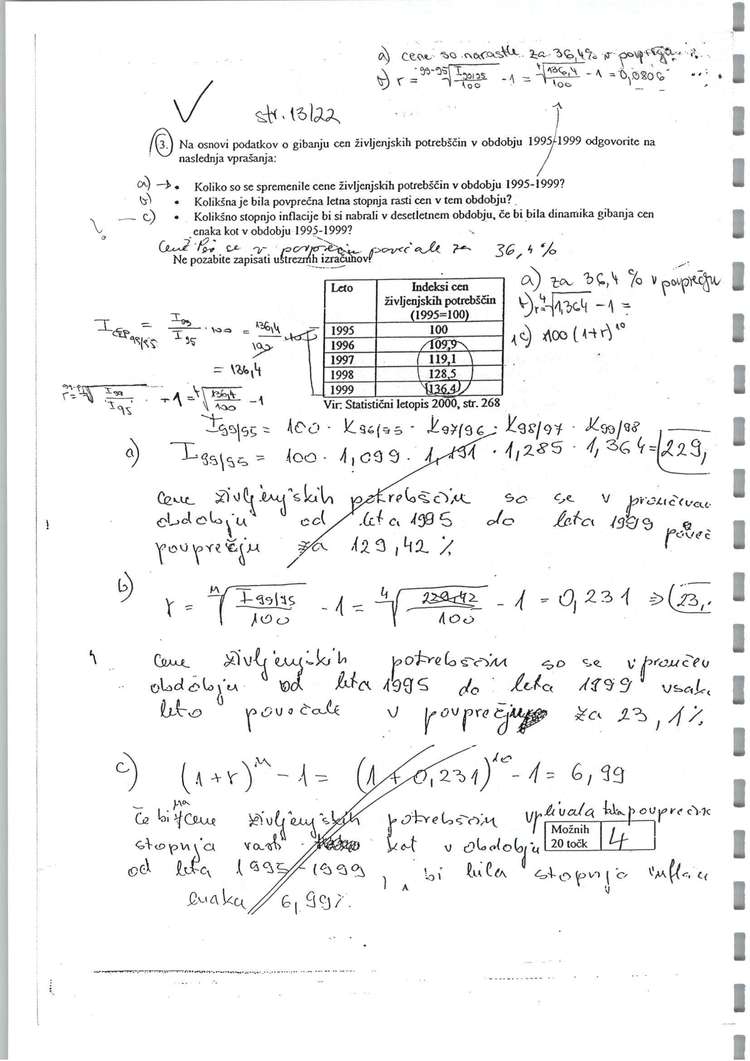 a) cene so narastle za 36,4% v povprečju
b) r = 99-95√I99/95/100 - 1 = 4√136,4/100 - 1 = 0,0806
str. 13/22
3. Na osnovi podatkov o gibanju cen življenjskih potrebščin v obdobju 1995-1999 odgovorite na
naslednja vprašanja:
a) → • Koliko so se spremenile cene življenjskih potrebščin v obdobju 1995-1999?
b) • Kolikšna je bila povprečna letna stopnja rasti cen v tem obdobju?
c) • Kolikšno stopnjo inflacije bi si nabrali v desetletnem obdobju, če bi bila dinamika gibanja cen
enaka kot v obdobju 1995-1999?
se v povprečju povečale za 36,4%
Ne pozabite zapisati ustreznih izračunov!
a) za 36,4 % v povprečju
b) r = 4√1,364 - 1 =
c) 100 (1+r)^10
Leto Indeksi cen
življenjskih potrebščin
(1995=100)
1995 100
1996 109,9
1997 119,1
1998 128,5
1999 136,4
Vir: Statistični letopis 2000, str. 268
= I99/I95 · 100 = 136,4/100
= 136,4
I99/I95 + 1 = 4√136,4/100 - 1
I99/95 = 100 · K96/95 · K97/96 · K98/97 · K99/98
a) I99/95 = 100 · 1,099 · 1,191 · 1,285 · 1,364 = 229,
Cene življenjskih potrebščin so se v
obdobju od leta 1995 do leta 1999
povprečju za 129,42 %
b) r = n√I99/95/100 - 1 = 4√229,42/100 - 1 = 0,231 ⇒ 23,
Cene življenjskih potrebščin so se v
obdobju od leta 1995 do leta 1999 vsako
leto povečale v povprečju za 23,1%
c) (1+r)^n - 1 = (1+0,231)^10 - 1 = 6,99
Če bi na cene življenjskih potrebščin vplivala
stopnja rasti kot v obdobju
Možnih
20 točk 4
od leta 1995-1999, bi bila stopnja
enaka 6,99%.